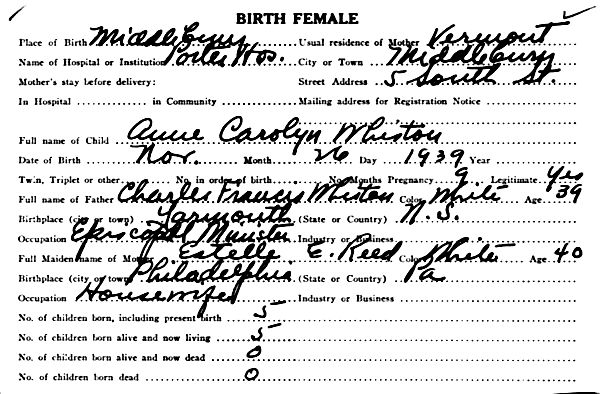 BIRTH FEMALE
Place of Birth Middlebury Usual residence of Mother Vermont
Name of Hospital or Institution Porter Hos. City or Town Middlebury
Mother's stay before delivery: Street Address 5 South St.
In Hospital in Community Mailing address for Registration Notice
Full name of Child Anne Carolyn Whiston
Date of Birth Nov. Month 26 Day 1939 Year
Twin, Triplet or other No. in order of birth No. Months Pregnancy 9 Legitimate Yes
Full name of Father Charles Francis Whiston Color White Age 39
Birthplace (city or town) Yarmouth (State or Country) N.S.
Occupation Episcopal Minister Industry or Business
Full Maiden name of Mother Estelle E. Reed Color White Age 40
Birthplace (city or town) Philadelphia (State or Country) Pa
Occupation Housewife Industry or Business
No. of children born, including present birth 5
No. of children born alive and now living 5
No. of children born alive and now dead 0
No. of children born dead 0